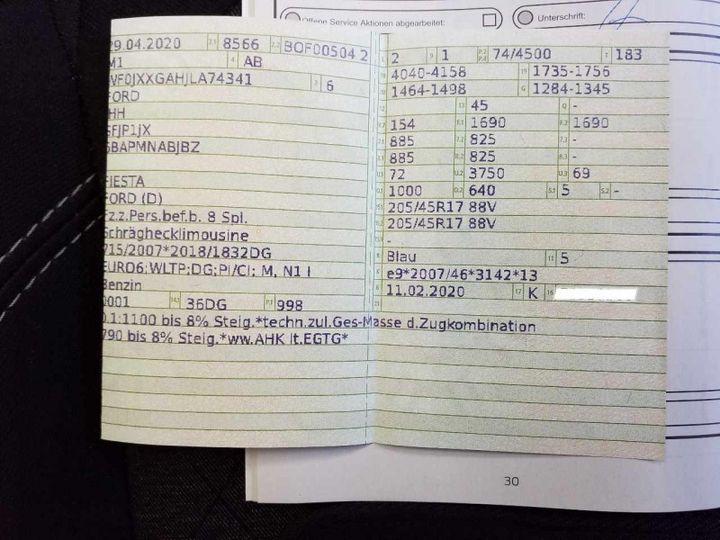 Offene Service Aktionen abgearbeitet:
Unterschrift:
29.04.2020 2.1 8566 2.2 BOF00504 2
M1 4 AB
WF0JXXGAHJLA74341 3 6
FORD
JHH
SFJP1JX
5BAPMNABJBZ
FIESTA
FORD (D)
Fz.z.Pers.bef.b. 8 Spl.
Schräghecklimousine
715/2007*2018/1832DG
EURO6;WLTP;DG;PI/CI; M, N1 I
Benzin
0001 14.1 36DG P.1 998
O.1:1100 bis 8% Steig.*techn.zul.Ges-Masse d.Zugkombination
790 bis 8% Steig.*ww.AHK lt.EGTG*
2 9 1 P.2 P.4 74/4500 T 183
18 4040-4158 19 1735-1756
20 1464-1498 G 1284-1345
13 45 Q -
154 F.1 1690 F.2 1690
885 7.2 825 7.3 -
885 8.2 825 8.3 -
72 U.2 3750 U.3 69
1000 O.2 640 S.1 5 S.2 -
205/45R17 88V
205/45R17 88V
-
Blau 11 5
e9*2007/46*3142*13
11.02.2020 17 K 16
30